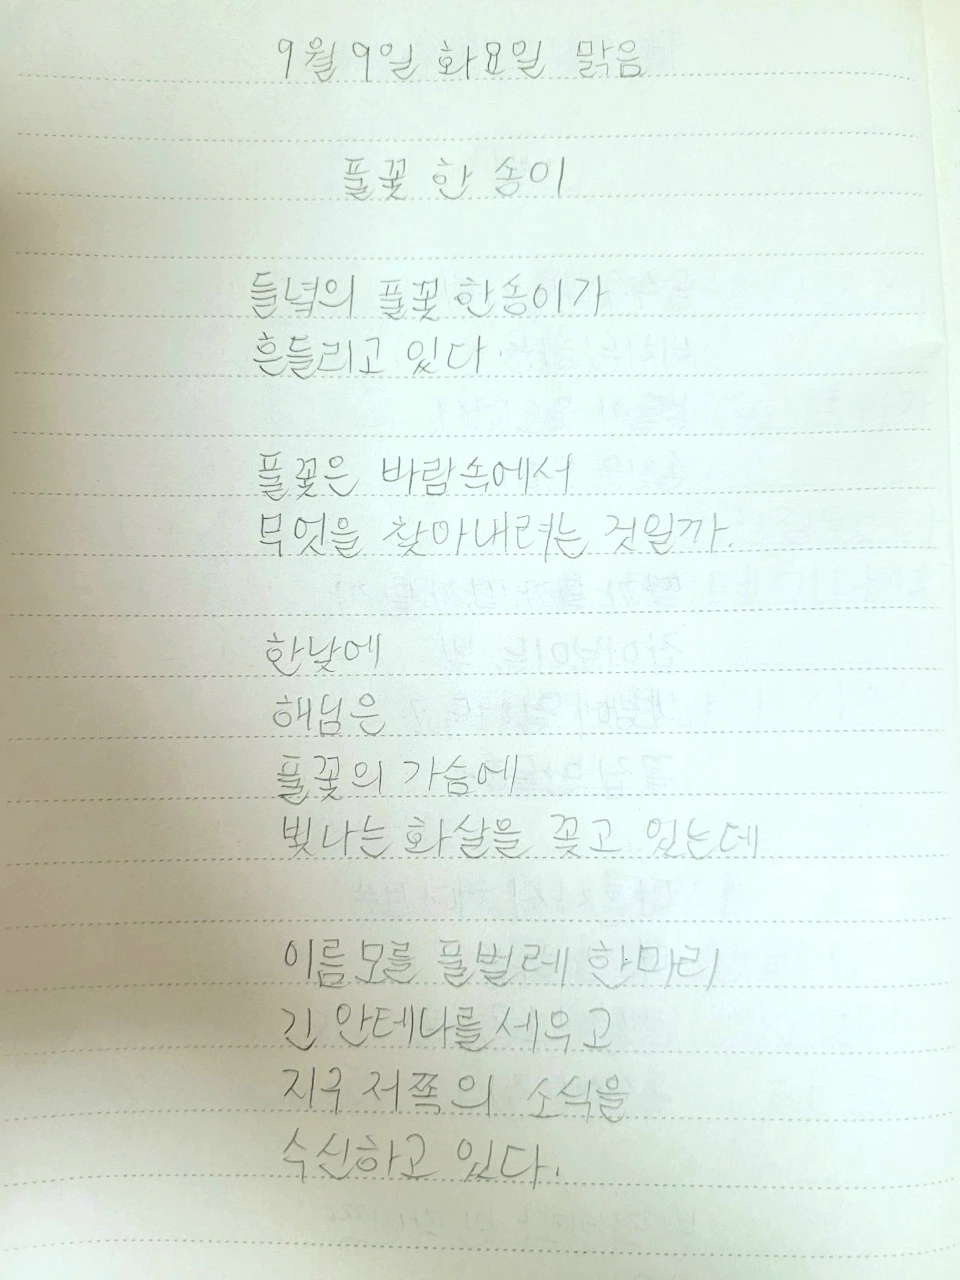 9월 9일 화요일 맑음
풀꽃 한 송이
들녘의 풀꽃 한송이가
흔들리고 있다.
풀꽃은 바람속에서
무엇을 찾아내려는 것일까.
한낮에
해님은
풀꽃의 가슴에
빛나는 화살을 꽂고 있는데
이름모를 풀벌레 한마리
긴 안테나를 세우고
지구 저쪽의 소식을
수신하고 있다.